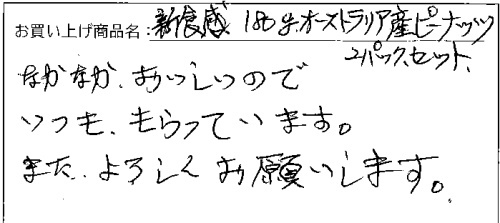 お買い上げ商品名：新食感 180g.オーストラリア産ピーナッツ
2パック.セット.
なかなか、おいしいので
いつも、もらっています。
また、よろしくお願いします。